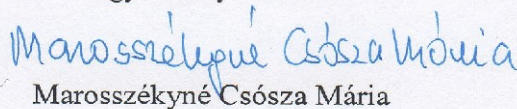 Marosszékyné Csósza Mária
Marosszékyné Csósza Mária